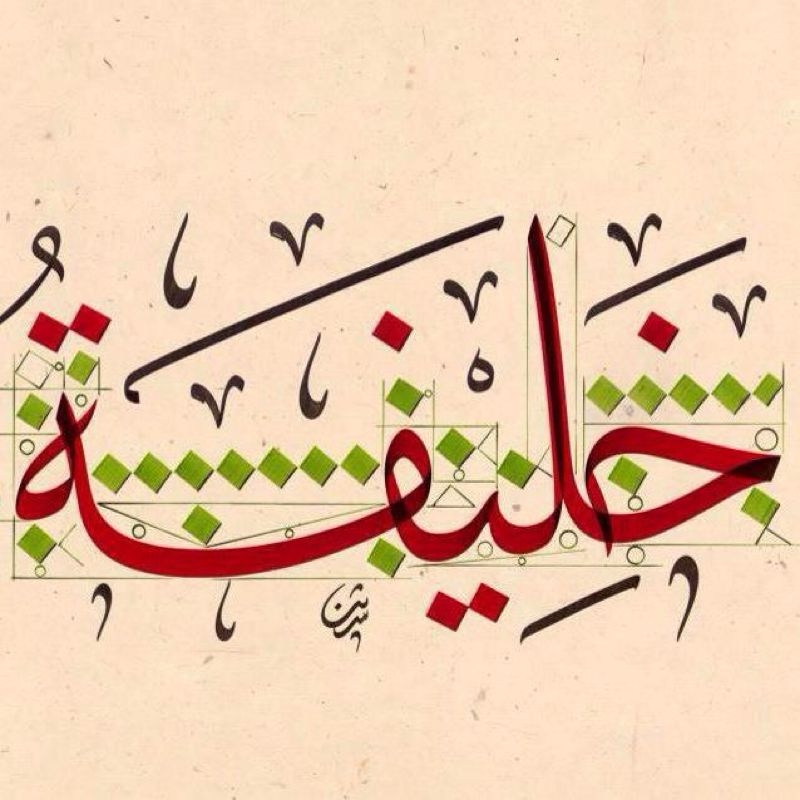 خليفة